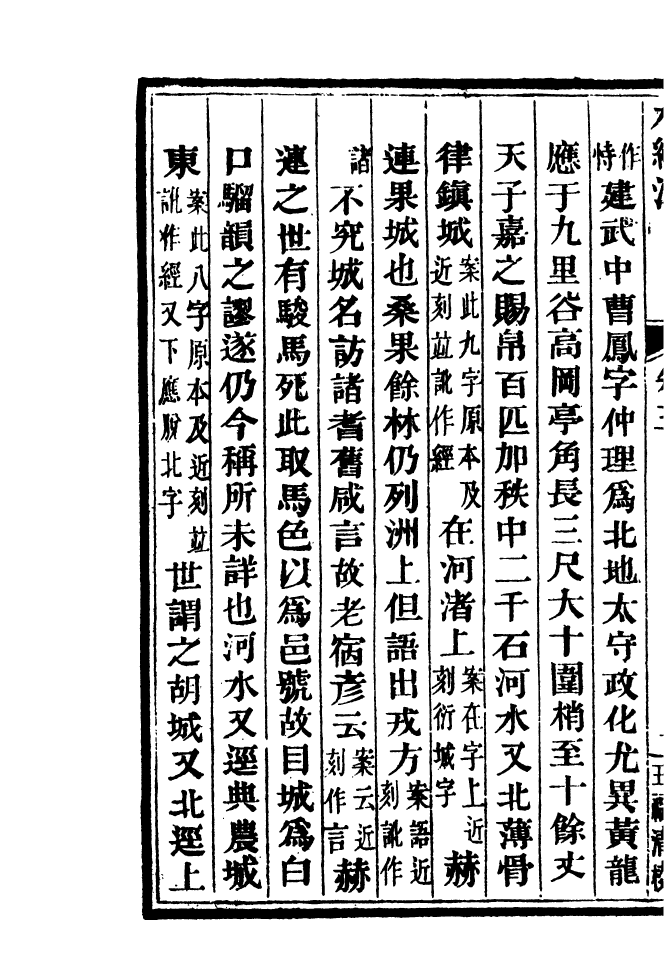 水經注
作恃建武中曹鳳字仲理爲北地太守政化尤異黃龍
應于九里谷高岡亭角長三尺大十圍梢至十餘丈
天子嘉之賜帛百匹加秩中二千石河水又北薄骨
律鎭城案此九字原本及近刻並訛作經在河渚上案在字上近刻衍城字赫
連果城也桑果餘林仍列洲上但語出戎方案語近刻訛作
諸不究城名訪諸耆舊咸言故老宿彦云案云近刻作言赫
連之世有駿馬死此取馬色以爲邑號故目城爲白
口騮韻之謬遂仍今稱所未詳也河水又逕典農城
東案此八字原本及近刻並訛作經又下應脫北字世謂之胡城又北逕上